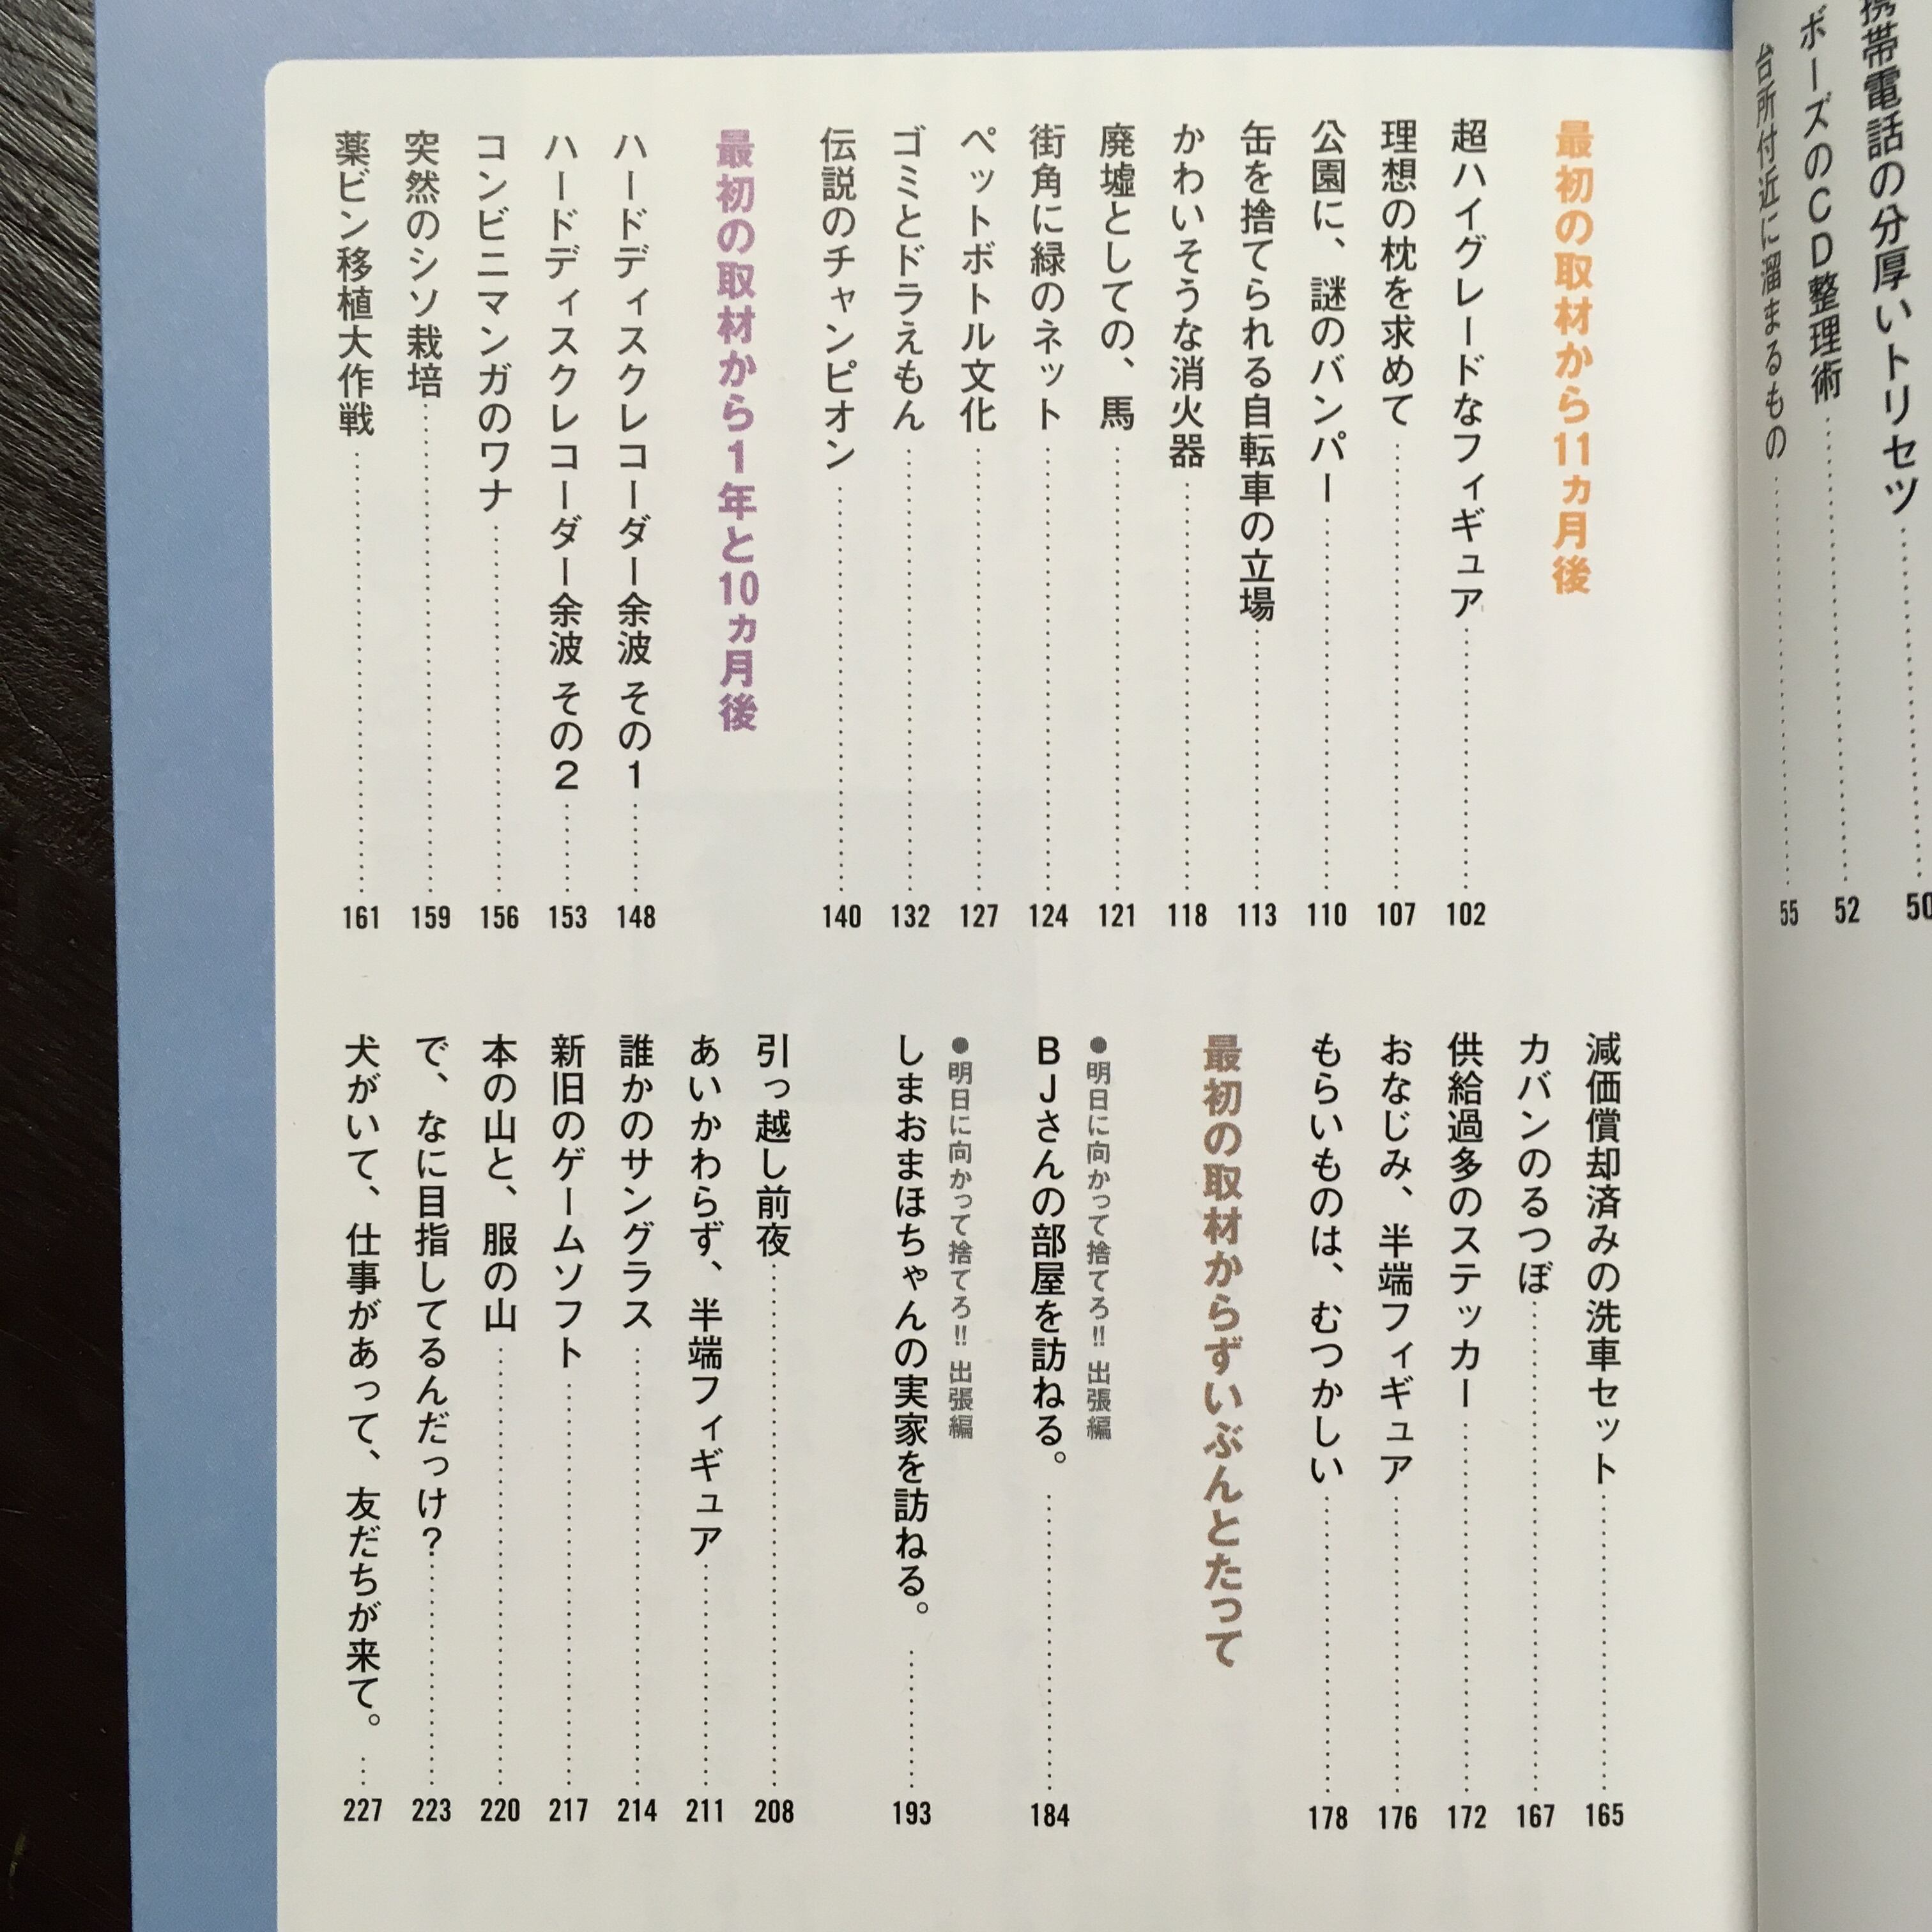 携帯電話の分厚いトリセツ 50
ボーズのCD整理術 52
台所付近に溜まるもの 55
最初の取材から11ヵ月後
超ハイグレードなフィギュア 102
理想の枕を求めて 107
公園に、謎のバンパー 110
缶を捨てられる自転車の立場 113
かわいそうな消火器 118
廃墟としての、馬 121
街角に緑のネット 124
ペットボトル文化 127
ゴミとドラえもん 132
伝説のチャンピオン 140
最初の取材から1年と10ヵ月後
ハードディスクレコーダー余波 その1 148
ハードディスクレコーダー余波 その2 153
コンビニマンガのワナ 156
突然のシソ栽培 159
薬ビン移植大作戦 161
減価償却済みの洗車セット 165
カバンのるつぼ 167
供給過多のステッカー 172
おなじみ、半端フィギュア 176
もらいものは、むつかしい 178
最初の取材からずいぶんとたって
●明日に向かって捨てろ!! 出張編
BJさんの部屋を訪ねる。 184
●明日に向かって捨てろ!! 出張編
しまおまほちゃんの実家を訪ねる。 193
引っ越し前夜 208
あいかわらず、半端フィギュア 211
誰かのサングラス 214
新旧のゲームソフト 217
本の山と、服の山 220
で、なに目指してるんだっけ？ 223
犬がいて、仕事があって、友だちが来て。 227